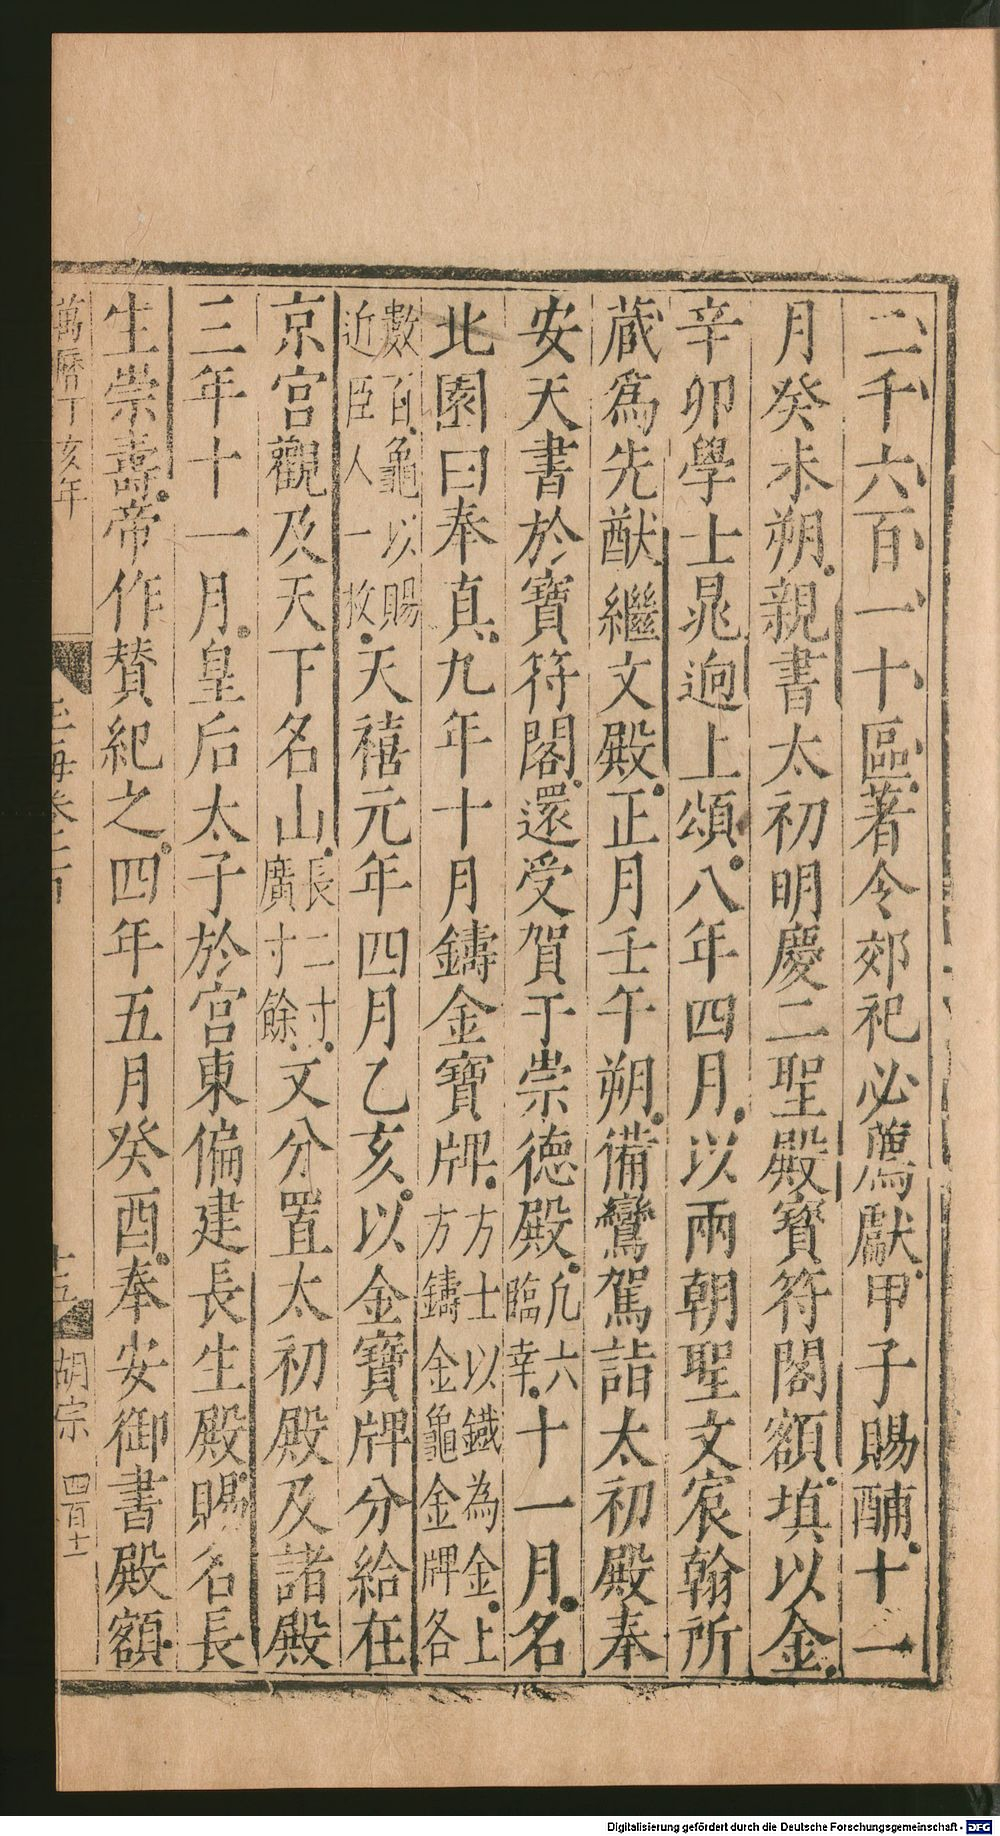 二千六百一十區著令郊祀必薦獻甲子賜酺十一
月癸未朔親書太初明慶二聖殿寳符閣額填以金
辛卯學士晁迥上頌八年四月以兩朝聖文宸翰所
蔵爲先猷繼文殿正月壬午朔備鸞駕詣太初殿奉
安天書於寶符閣還受賀于崇德殿凡六臨幸十一月名
北園曰奉真九年十月鑄金寶牌方士以鐵為金上方鑄金龜金牌各
數百龜以賜近臣人一枚天禧元年四月乙亥以金寶牌分給在
京宮觀及天下名山長二寸廣寸餘文分置太初殿及諸殿
三年十一月皇后太子於宮東偏建長生殿賜名長
生崇壽帝作賛紀之四年五月癸酉奉安御書殿額
萬曆丁亥年
玉海卷一百
十五
胡宗
四百十一
Digitalisierung gefördert durch die Deutsche Forschungsgemeinschaft - DFG